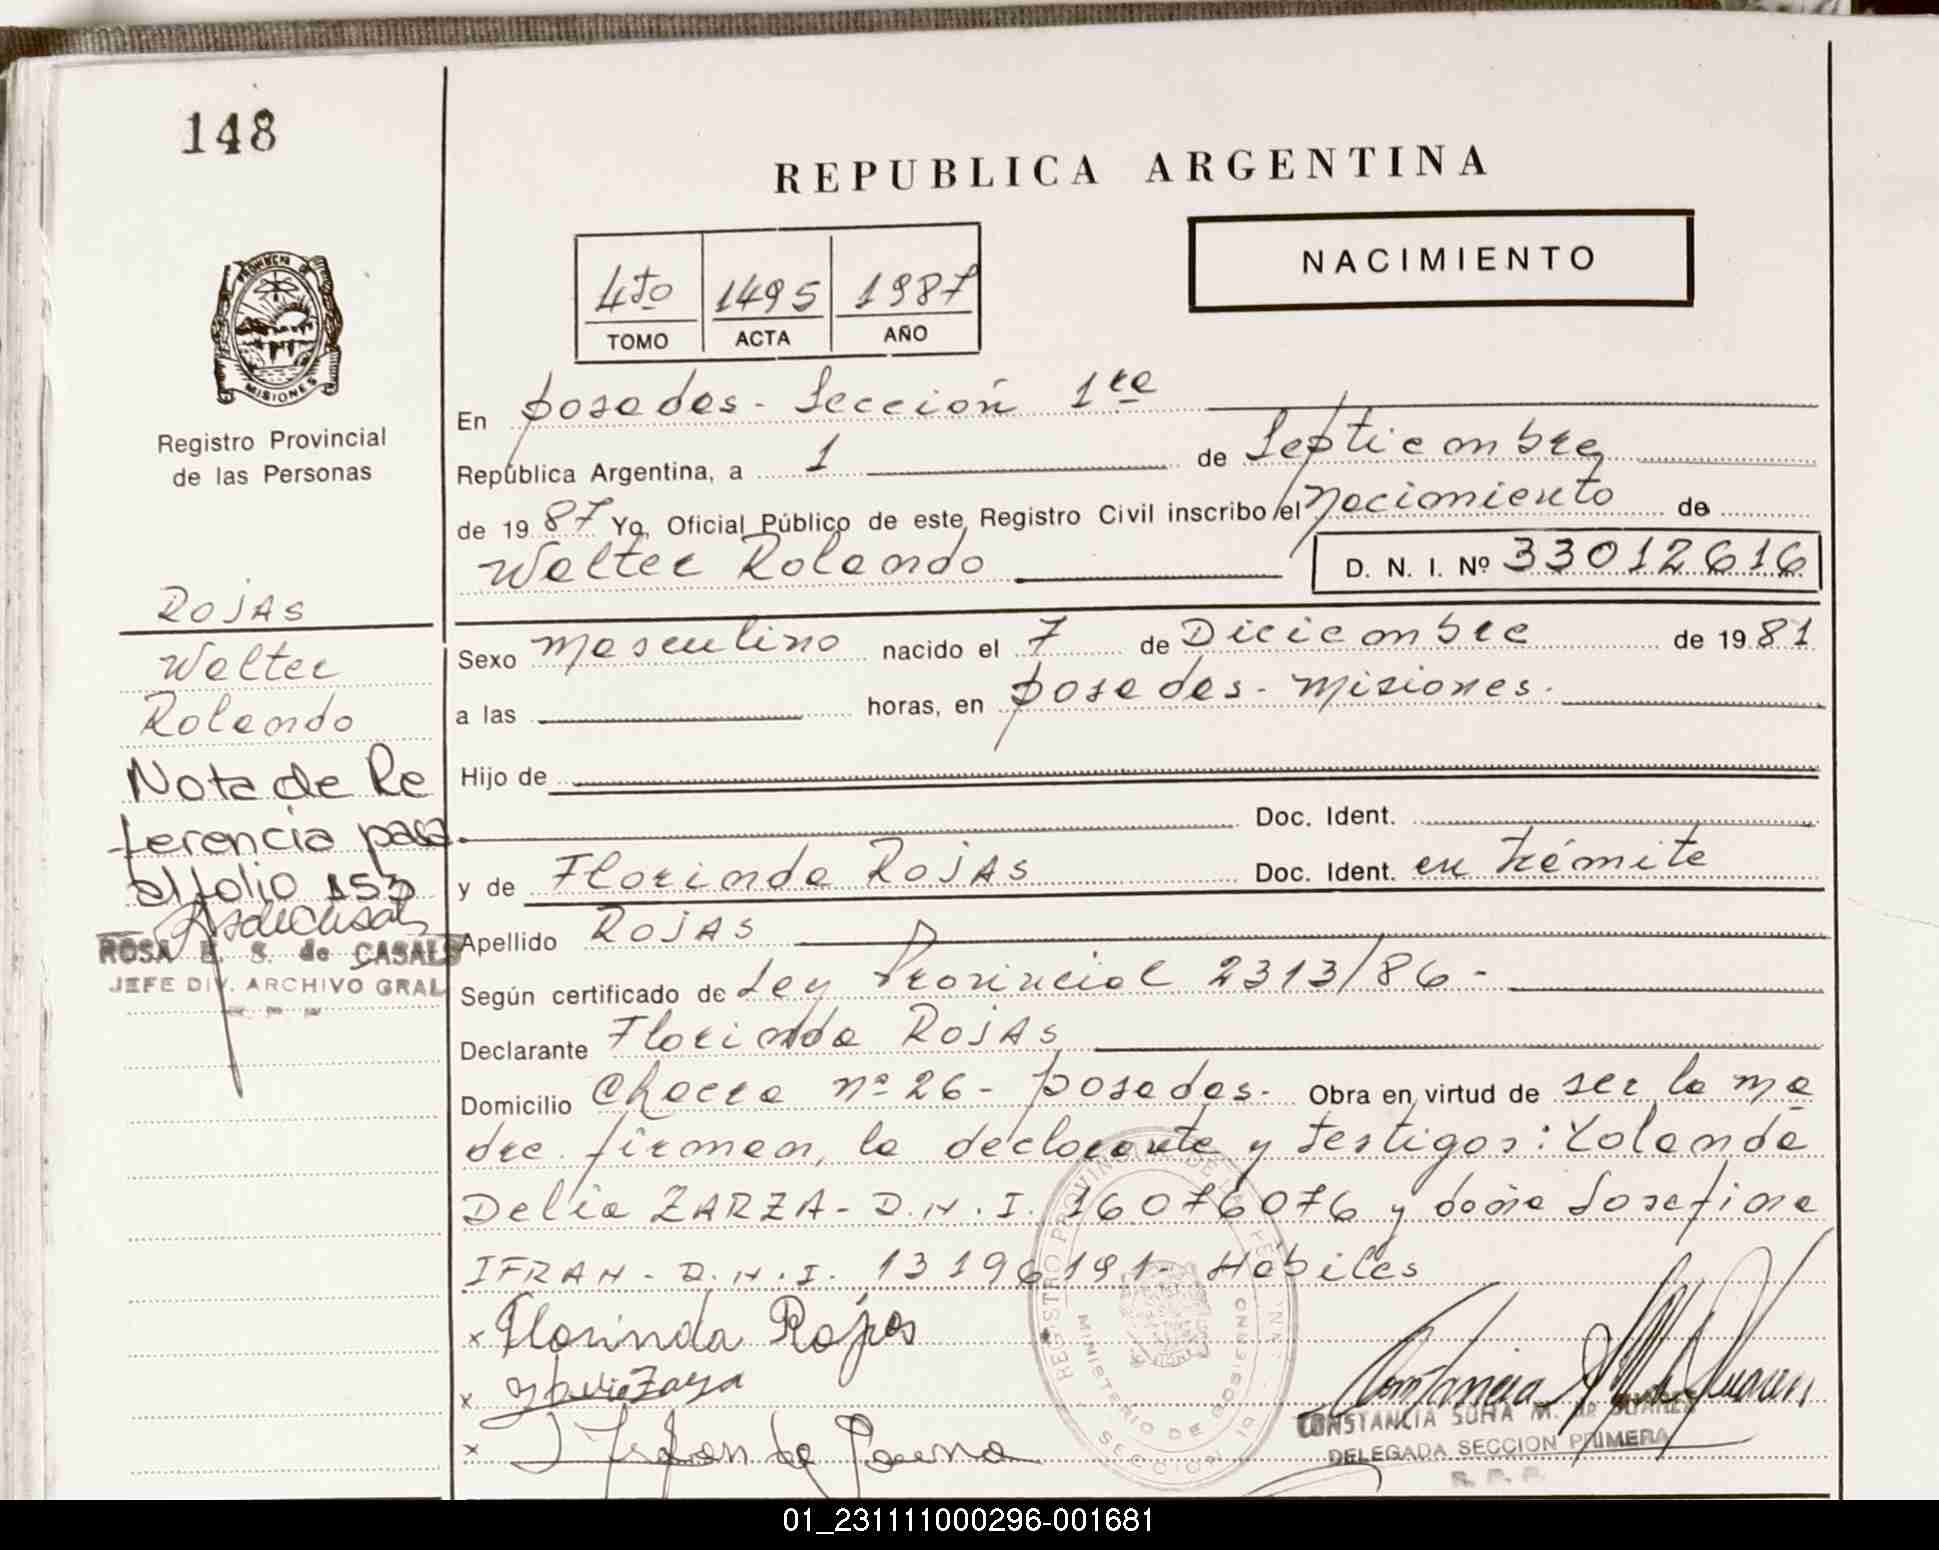 148
REPUBLICA ARGENTINA
NACIMIENTO
4to 1495 1987
TOMO ACTA AÑO
PROVINCIA DE
MISIONES
Registro Provincial
de las Personas
En Posadas - Sección 1ra
República Argentina, a 1 de Septiembre
de 1987 Yo, Oficial Público de este Registro Civil inscribo el Nacimiento de
Walter Rolando D. N. I. Nº 33012616
ROJAS
Walter
Rolando
Nota de Re
ferencia pasa
al folio 153
ROSA E. S. de CASALS
JEFE DIV. ARCHIVO GRAL
Sexo masculino nacido el 7 de Diciembre de 1981
a las horas, en Posadas - Misiones.
Hijo de
Doc. Ident.
y de Florinda ROJAS Doc. Ident. en trámite
Apellido ROJAS
Según certificado de Ley Provincial 2313/86 -
Declarante Florinda ROJAS
Domicilio Chacra nº 26 - Posadas. Obra en virtud de ser la ma
dre. firman, la declarante y testigos: Yolanda
Delia ZARZA - D.N.I. 16076076 y doña Josefina
IFRAN - D.N.I. 13196191 - Hábiles
x Florinda Rojas
x
x
REGISTRO PROVINCIAL DE LAS PERSONAS
MINISTERIO DE GOBIERNO
SECCION 1a
CONSTANCIA SOFIA M. de SUARES
DELEGADA SECCION PRIMERA
R. P. P.
01_231111000296-001681